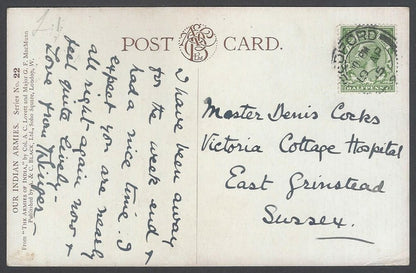 POST CARD.
I have been away
for the week end &
had a nice time. I
expect you are nearly
all right again now &
feel quite lively -
Love from
Master Denis Corks
Victoria Cottage Hospital
East Grinstead
Sussex.
OUR INDIAN ARMIES. Series No. 22
From "THE ARMIES OF INDIA," by Col. A. C. Lovett and Major G. F. MacMunn
Published by A. & C. BLACK, Ltd., Soho Square, London, W.
HALFPENNY